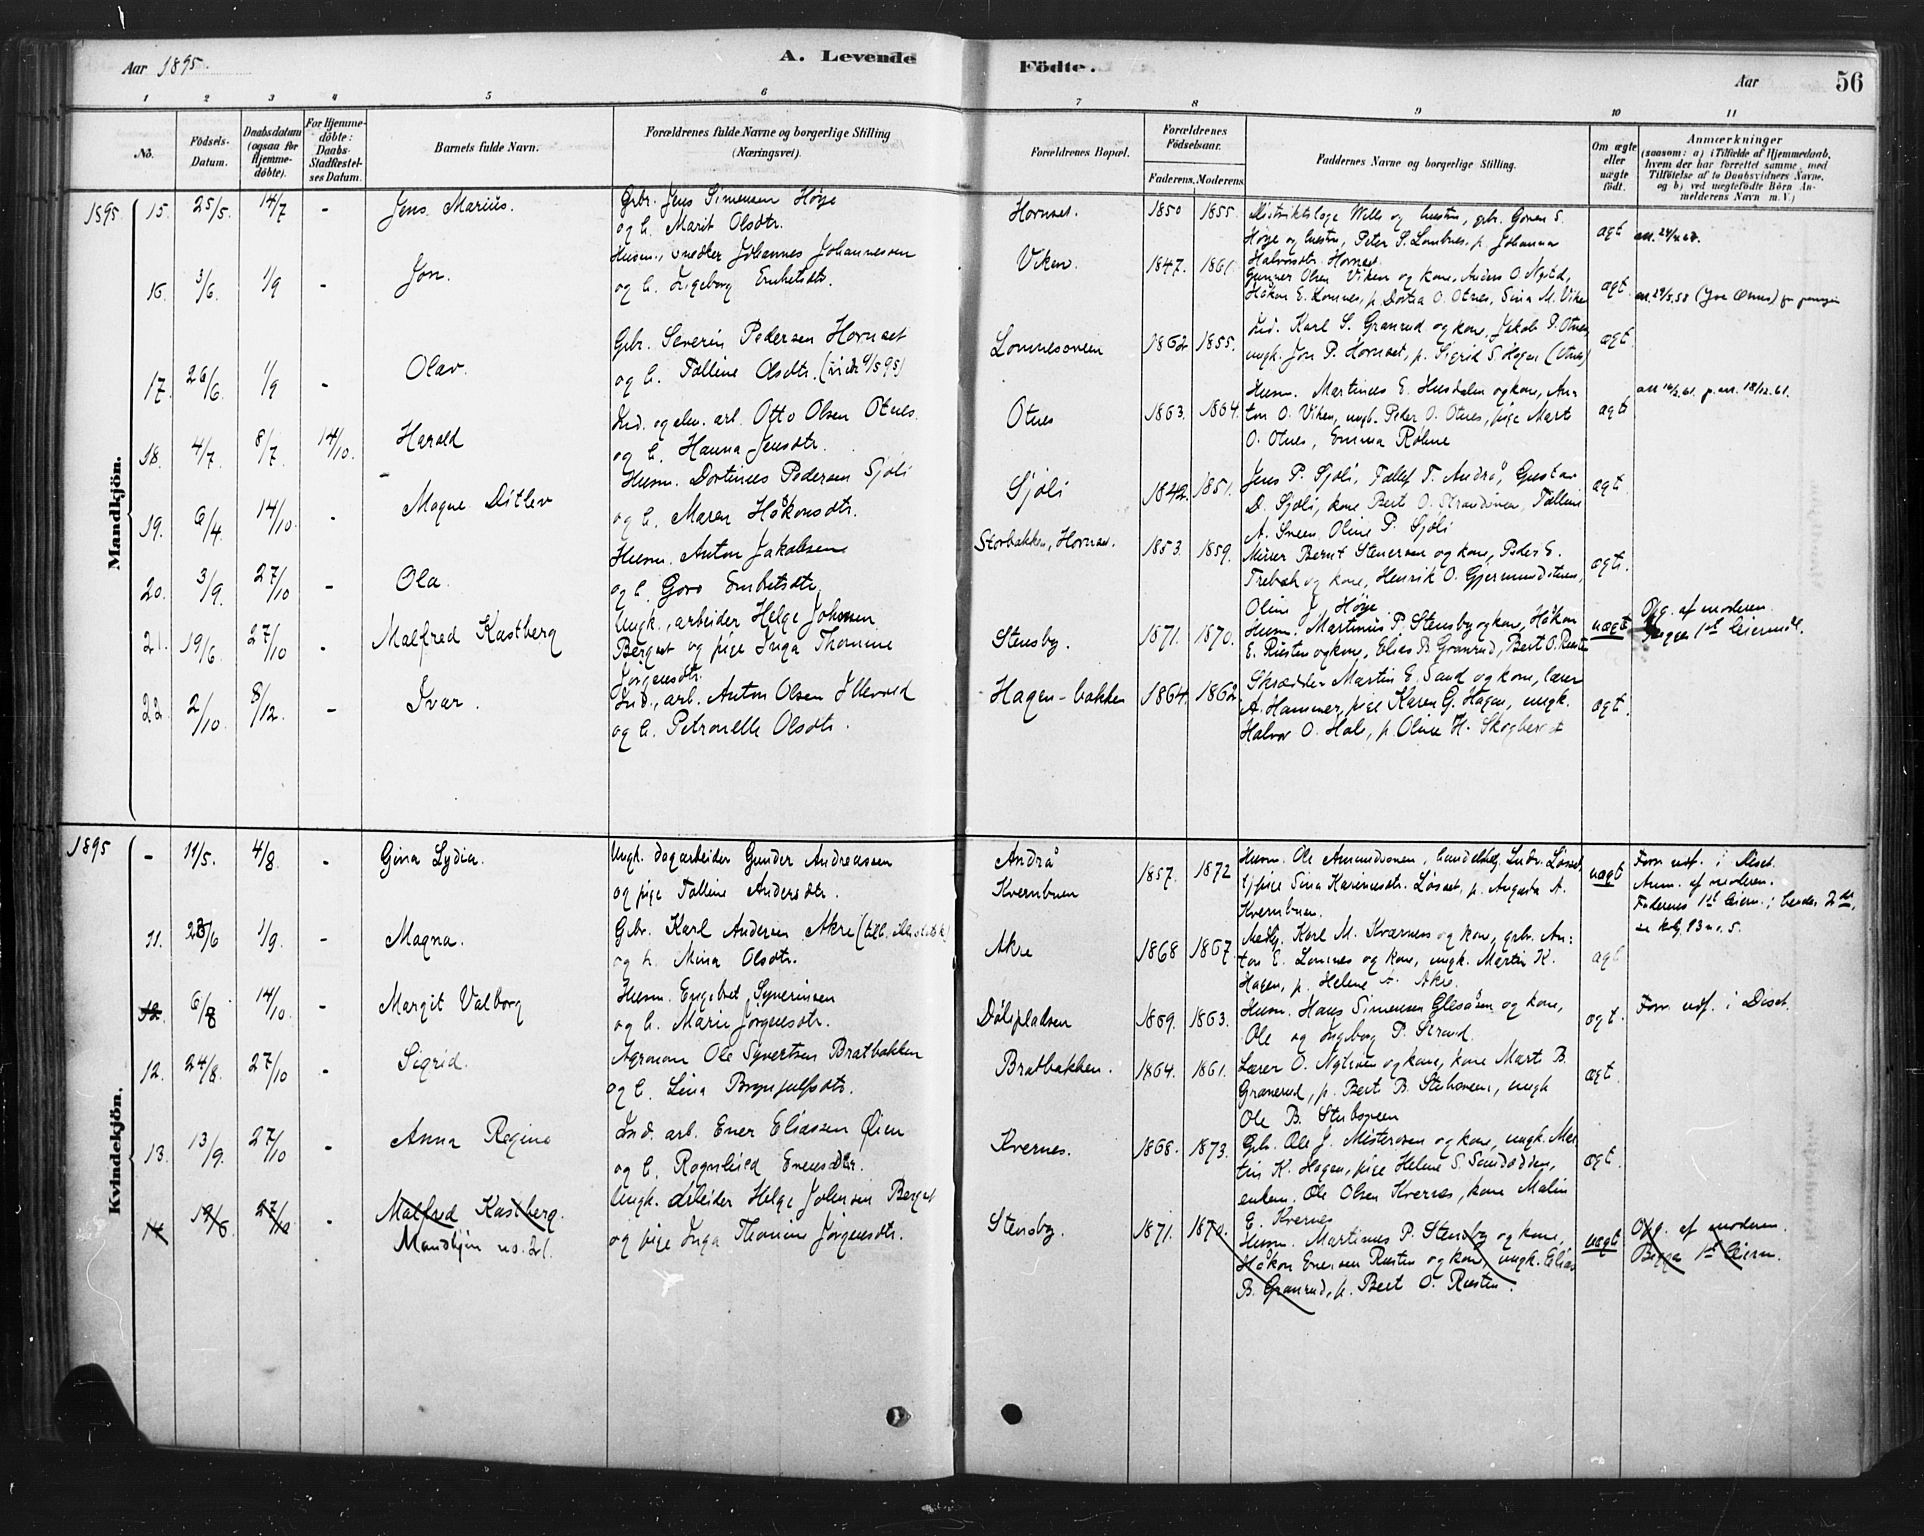 Aar 1895.
A. Levende Födte.
Aar
56
1 2 3 4 5 6 7 8 9 10 11
No.
Födsels-Datum.
Daabsdatum (ogsaa for Hjemme-döbte).
For Hjemme-döbte: Daabs-Stadfæstel-ses Datum.
Barnets fulde Navn.
Forældrenes fulde Navne og borgerlige Stilling (Næringsvei).
Forældrenes Bopæl.
Forældrenes Födselsaar.
Faderens. Moderens.
Faddernes Navne og borgerlige Stilling.
Om ægte eller uægte födt.
Anmærkninger
(saasom: a) i Tilfælde af Hjemmedaab, hvem der har forrettet samme, med Tilföielse af to Daabsvidners Navne, og b) ved uægtefödte Börn Anmelderens Navn m. V.)
Mandkjön.
1895 15. 25/5. 14/7 - Jens Marius.
Gbr. Jens Simensen Høye
og h. Marit Olsdtr.
Hornset. 1850 1855.
Distriktslæge Wille og hustru, gbr. Goren S.
Høye og hustru, Peter S. Lombnes, p. Johanna
Halvorsdtr. Hornset.
ægt
16. 3/6. 1/9 - Jon.
Husm., snedker Johannes Johannessen
og h. Ingeborg Embretsdtr.
Viken. 1847. 1861.
Gunner Olsen Viken og kone, Anders O. Nysted,
Håkon E. Lomnes, p. Dortea O. Otnes, Sina M. Viken
ægt.
17. 26/6. 1/9 - Olav.
Gbr. Severin Pedersen Hornset
og h. Talline Olsdtr. (viede 9/5 95)
Lomnesoveien 1862 1855.
Ind. Karl S. Granrud og kone, Jakob P. Otnes,
ungk. Jon P. Hornset, p. Sigrid S. Hagen (Otnes)
ægt.
18. 4/7. 8/7. 14/10. Harald
Ind. og elv. arb. Otto Olsen Otnes.
og h. Hanna Jensdtr.
Otnes 1863. 1864.
Husm. Martinus E. Husdalen og kone, An-
ton O. Viken, ungk. Peder O. Otnes, pige Mart
O. Otnes, Emma Rohne
ægt
19. 6/4. 14/10. - Magne Ditlev
Husm. Dortinus Pedersen Sjøli
og h. Maren Håkonsdtr.
Sjøli 1842. 1851.
Jens P. Sjøli, Tallef T. Andrå, Gustav
D. Sjøli, kone Bert O. Strandmoen, Talline
A. Sneen, Oline P. Sjøli
ægt.
20. 3/9. 27/10 - Ola.
Husm. Anton Jakobsen
og h. Goro Embretsdtr.
Storbakken, Hornset. 1853. 1859.
Murer Bernt Stenersen og kone, Peder E.
Trebæk og kone, Henrik O. Gjermundstuen,
Oline J. Høye.
ægt.
21. 19/6. 27/10 - Malfred Kastberg
Ungk., arbeider Helge Johnsen
Berget og pige Inga Thomine
Jørgensdtr.
Stensby. 1871. 1870.
Husm. Martinus P. Stensby og kone, Håkon
E. Rusten og kone, Elias B. Granrud, Bert O. Rusten
uægt
Opg. af moderen.
Begges 1ste leiermål.
22. 2/10. 8/12. - Ivar.
Ind., arb. Anton Olsen Illevold
og h. Petronelle Olsdtr.
Hagen-bakken 1864. 1862
Skrædder Martin E. Sand og kone, lærer
A. Hammer, pige Karen G. Hagen, ungk.
Halvor O. Hole, p. Oline H. Skogberget
ægt.
Kvindekjön.
1895 - 11/5. 4/8. - Gina Lydia.
Ungk. dagarbeider Gunder Andreassen
og pige Talline Andersdtr.
Andrå
Kvernbuen 1857. 1872
Husm. Ole Amundsonen, handelsbetj. Ludv. Løsset,
pige Sina Karinesdtr. Løsset, p. Augusta A.
Kvernbuen.
uægt
Forr. udf. i Aaset.
Anm. af moderen.
Faderens 1ste leierm.; hendes 2det,
11. 23/6 1/9. - Magna.
Gbr. Karl Andersen Akre
og h. Mina Olsdtr.
Akre 1868 1867
Karl M. Kværnes og kone, gbr. An-
ton E. Lomnes og kone, ungk. Martin K.
Hagen, p. Helene A. Akre.
ægt
12. 6/8 14/10. - Margit Valborg
Husm. Engebret Syverinsen
og h. Marie Jørgensdtr.
Dölipladsen 1869. 1863.
Husm. Hans Simensen Glesåsen og kone,
Ole og Ingeborg P. Strand.
ægt.
12. 24/8. 27/10 - Sigrid.
Agronom Ole Syvertsen Bratbakken
og h. Lina Brynjulfsdtr.
Bratbakken. 1864. 1861.
Lærer O. Nytrøen og kone, kone Mart B.
Granerud, p. Bert B. Stubsveen, ungk
Ole B. Stubsveen
ægt
13. 13/9. 27/10 - Anna Regine
Ind. arb. Ener Eliassen Øien
og h. Ragnhild Enersdtr.
Kvernes. 1868. 1873.
Gbr. Ole J. Misterosen og kone, ungk. Mar
tin K. Hagen, pige Helene S. Sundodden,
enkem. Ole Olsen Kvernes, kone Malin
E. Kvernes
ægt.
14 19/6 27/10 - Malfred Kastberg.
Mandkjön no. 21.
Ungk. arbeider Helge Johnsen Berget
og pige Inga Thomine Jørgensdtr.
Stensby. 1871. 1870.
Husm. Martinus P. Stensby og kone,
Håkon Enersen Rusten og kone, ungk. Elias
B. Granrud, p. Bert O. Rusten.
uægt
Opg. af moderen.
Begges 1ste leierm.